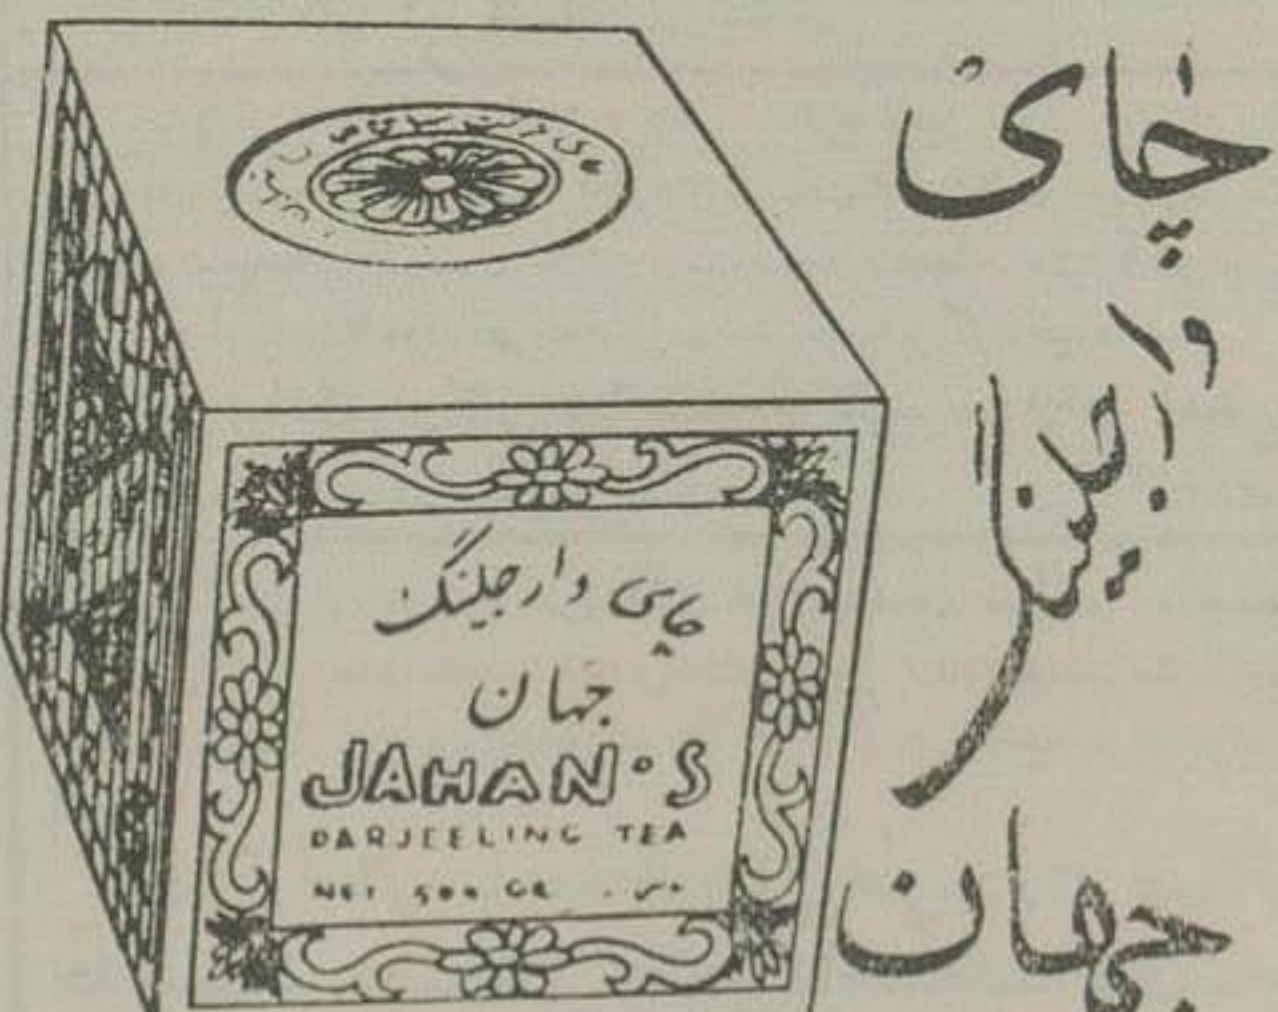 چای
جهان
چای دارجیلنگ
جهان
JAHAN'S
DARJEELING TEA
NET 500 GR